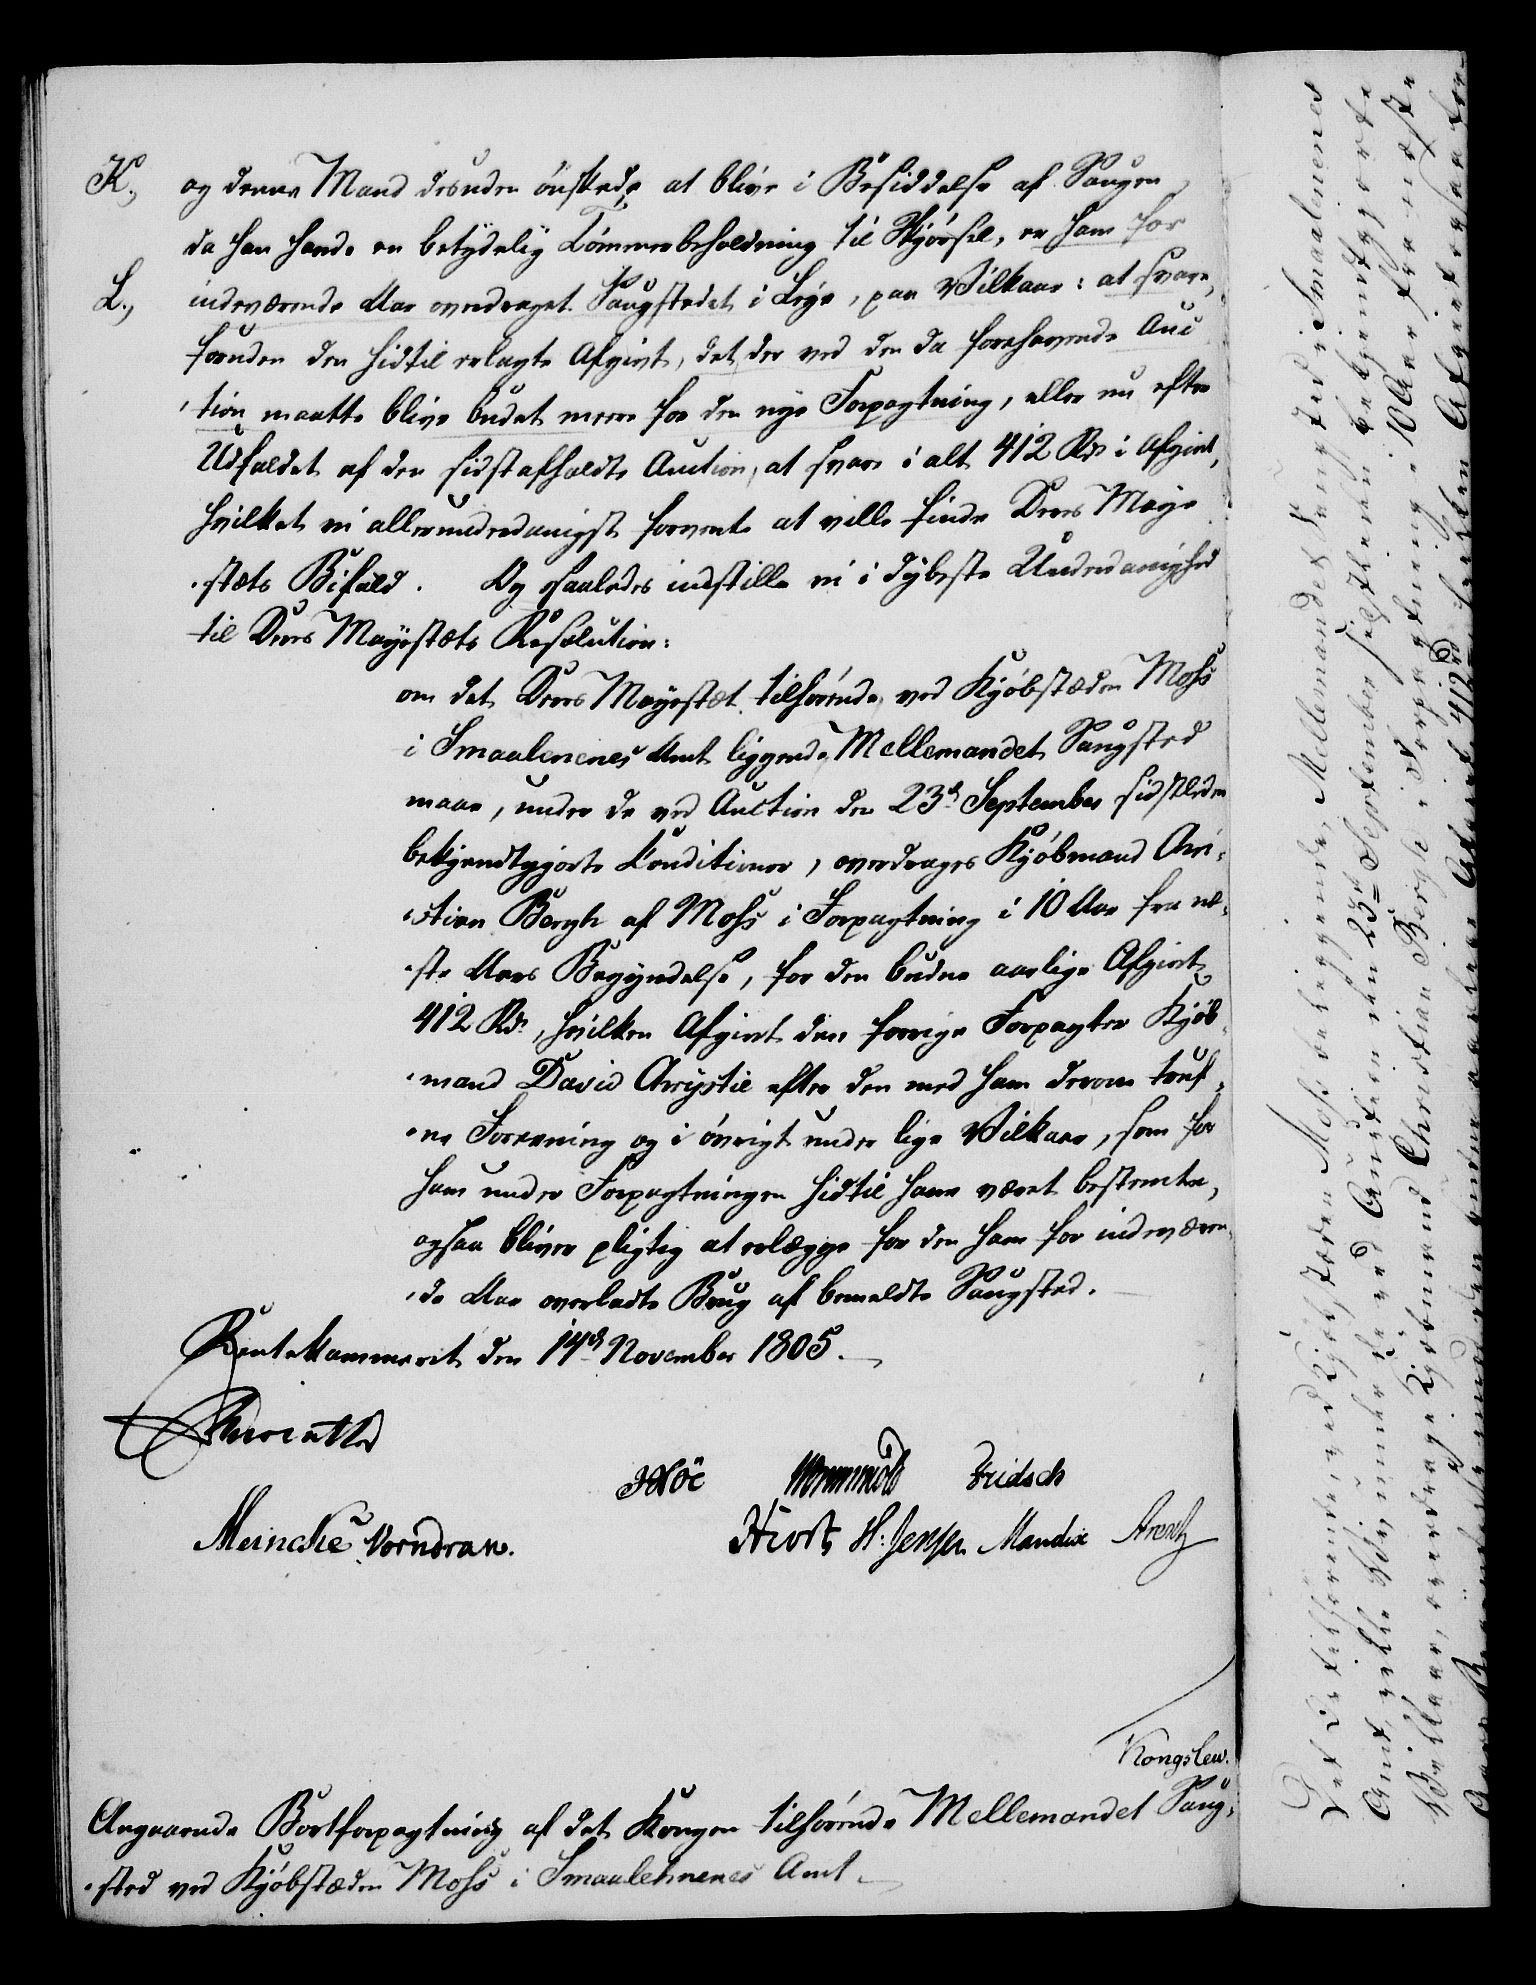 K., og denne Mand desuden ønskede at blive i Besiddelse af Saugen
da han havde en betydelig Tømmerbeholdning til Skjørsel, er ham for
L., indeværende Aar overdraget Saugstedet i Leye, paa Vilkaar: at svare,
foruden den hidtil erlagte Afgivt, det der ved den da forehavende Auc
tion maatte blive budet mere for den nye Forpagtning, eller nu efter
Udfaldet af den sidstafholdte Auction, at svare i alt 412 Rdr i Afgivt,
hvilket vi allerunderdanigst forvente at ville finde Deres Maye
stæts Bifald. Og saaledes indstille vi i dybeste Underdanighed
til Deres Mayestæts Resolution:
om det Deres Mayestæt tilhørende, ved Kjøbstæden Moss
i Smaalenenes Amt liggende Mellemandet Saugsted
maae, under de ved Auction den 23de September sidstleden
bekjendtgjorte Conditioner, overdrages Kjøbmand Chri-
stian Bergh af Moss i Forpagtning i 10 Aar fra næ-
ste Aars Begyndelse, for den budne aarlige Afgivt
412 Rdr, hvilken Afgivt den forrige Forpagter Kjøb-
mand David Chrystie efter den med ham derom truf-
ne Forening og i øvrigt under lige Vilkaar, som for
ham under Forpagtningen hidtil have været bestemte,
ogsaa bliver pligtig at erlægge for den ham for indeværen-
de Aar overladte Brug af bemeldte Saugsted.
Rentekammeret den 14de November 1805.
Reventlow
Høe Wormskiold Fridsch
Meincke Vorndran. Hiort H. Jensen Mandix Arentz
Kongslew.
Angaaende Bortforpagtning af det Kongen tilhørende Mellemandet Saug-
sted ved Kjøbstæden Moss i Smaalehnenes Amt.
Det Os tilhørende, ved Kjøbstæden Moss beliggende, Mellemandet Saugsted i Smaalenenes
Amt, ville Vi under de ved Auction den 23de September sidstleden bekjendtgjorte
Vilkaar, overdrage Kjøbmand Christian Bergh i Forpagtning i 10 Aar fra næste